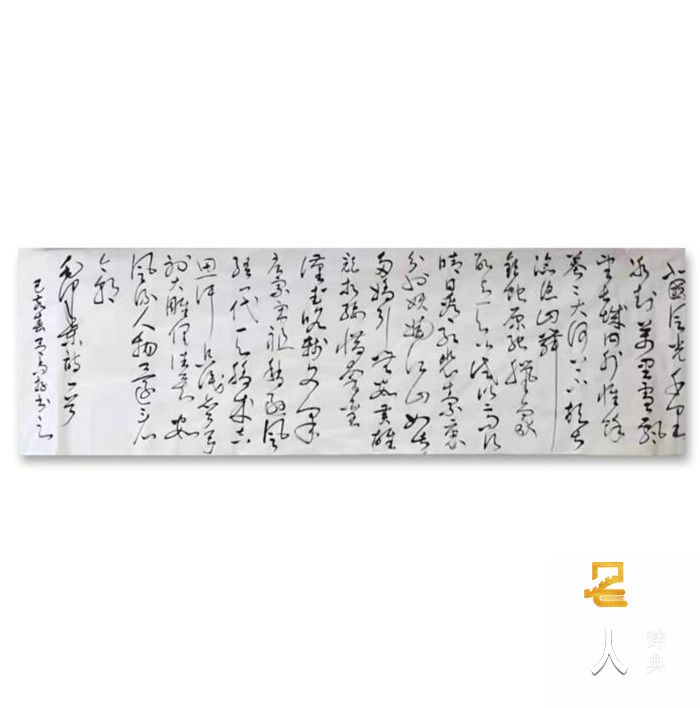 北国风光千里
冰封万里雪飘
望长城内外惟余
莽莽大河上下顿失
滔滔山舞
银蛇原驰蜡象
欲与天公试比高须
晴日看红装素裹
分外妖娆江山如此
多娇引无数英雄
竞折腰惜秦皇
汉武略输文采
唐宗宋祖稍逊风
骚一代天骄成吉
思汗只识弯弓
射大雕俱往矣数
风流人物还看
今朝
毛泽东诗一首
己亥春书之
人
辞典